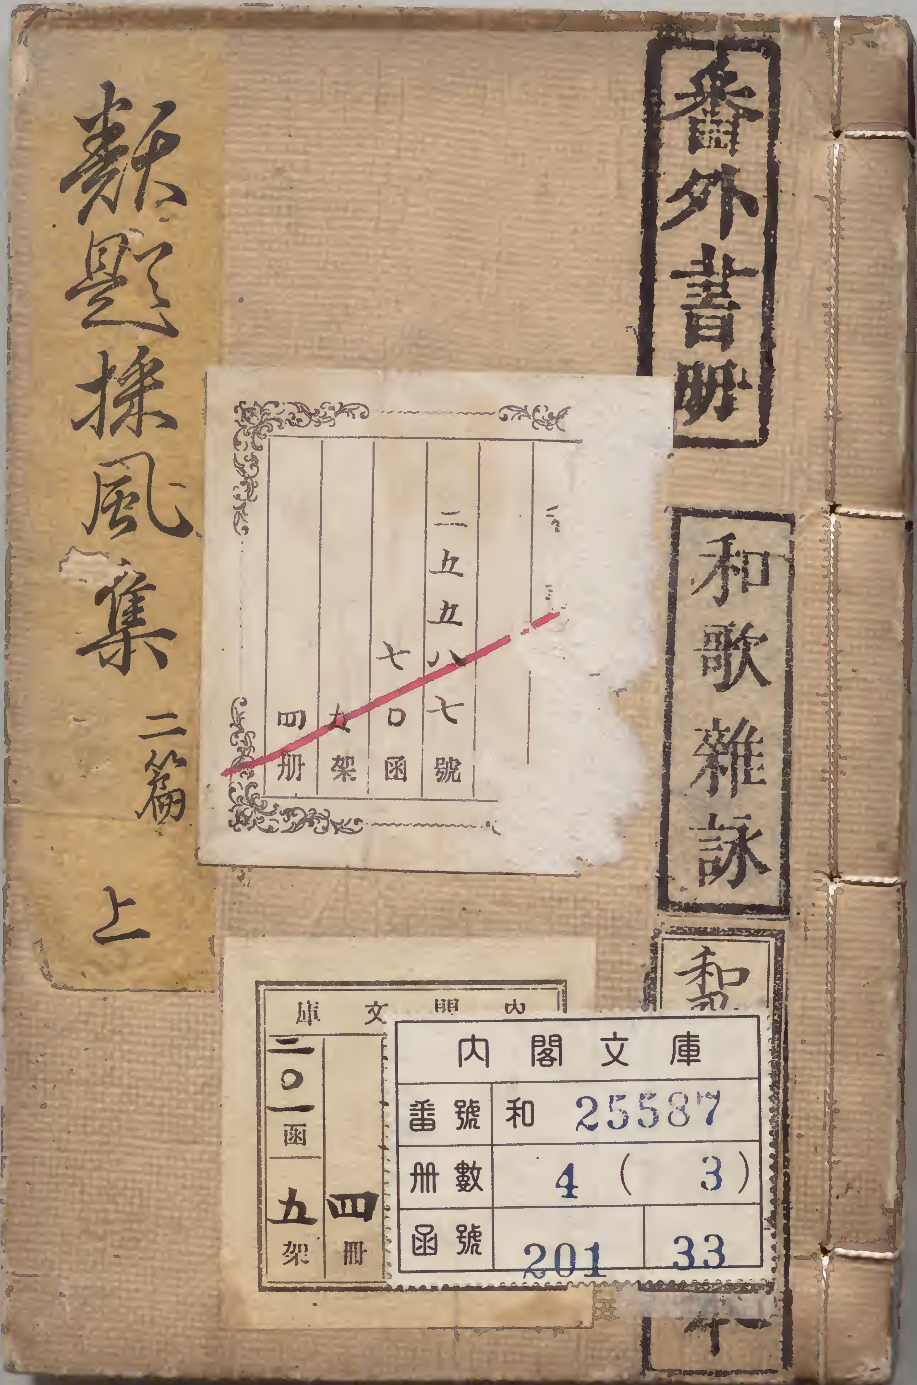 番外書冊
和歌雜詠
和
類題採風集 二篇 上
二五五八七號
七〇函
架
四册
内閣文庫
四冊
二〇一函
五架
内閣文庫
番號 和 25587
册數 4 ( 3 )
函號 201 33